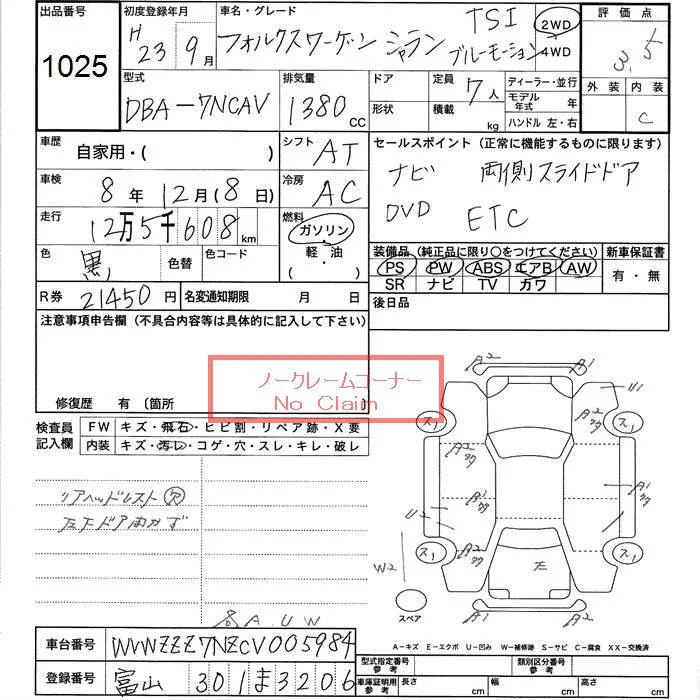 出品番号
1025
初度登録年月
H 23 9月
車名・グレード
フォルクスワーゲン シャラン TSI ブルーモーション
2WD
4WD
評価点
3.5
外装 内装
C
型式
DBA-7NCAV
排気量
1380 CC
ドア
形状
定員 7人
積載 kg
ディーラー・並行
モデル年式 年
ハンドル 左・右
車歴
自家用・( )
シフト AT
セールスポイント (正常に機能するものに限ります)
ナビ 両側スライドドア
DVD ETC
車検
8年 12月 (8日)
冷房 AC
走行
12万5千608 km
燃料
ガソリン
・軽・油
( )
色 黒
色替
色コード
装備品 (純正品に限り○をつけてください)
PS PW ABS エアB AW
SR ナビ TV カワ
新車保証書
有・無
R券 21450円
名変通知期限 月 日
後日品
注意事項申告欄 (不具合内容等は具体的に記入して下さい)
ノークレームコーナー
No Claim
修復歴 有 〔箇所
検査員記入欄
FW キズ・飛石・ヒビ割・リペア跡・X要
内装 キズ・汚レ・コゲ・穴・スレ・キレ・破レ
リアヘッドレスト 欠
左下ドア開かず
各A.U.W
A2 A1
U1
A2
ス1 ス1
A2
A1
A1
U2
W2
ス1 ス1
スペア
A1 A2
A-キズ E-エクボ U-凹み W-補修跡 S-サビ C-腐食 XX-交換済
車台番号 WVWZZZ7NZCV005984
登録番号 富山 301 ま 3206
型式指定番号 参考
類別区分番号 参考
車庫証明用 参考
長さ cm
幅 cm
高さ cm